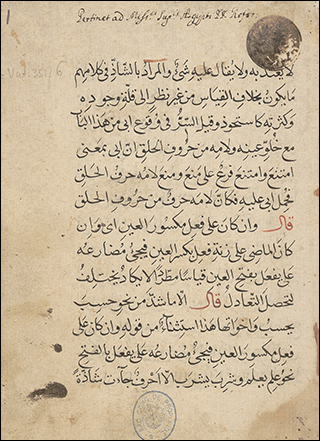 Pertinet ad
لا يعتد به ولا يقال عليه شيء والمراد بالشاذ في كلامهم
ما يكون بخلاف القياس من غير نظر الى قلة وجوده
وكثرته كاستحوذ وقيل السر في وقوع ابى من هذا الباب
مع خلو عينه ولامه من حروف الحلق ان ابى بمعنى
امتنع وامتنع فرع على منع ومنع لامه حرف الحلق
فحمل ابى عليه فكان لامه حرف من حروف الحلق
قال وان كان على فعل مكسور العين اى وان
كان الماضى على زنة فعل بكسر العين فيجئ مضارعه
على يفعل بفتح العين قياسا مطردا لا يكاد يختلف
لتحصل التعادل قال الا ما شذ من نحو حسب
يحسب واخواتها هذا استثناء من قوله وان كان على
فعل مكسور العين فيجئ مضارعه على يفعل بالفتح
نحو علم يعلم وشرب يشرب الا احرف جاءت شاذة